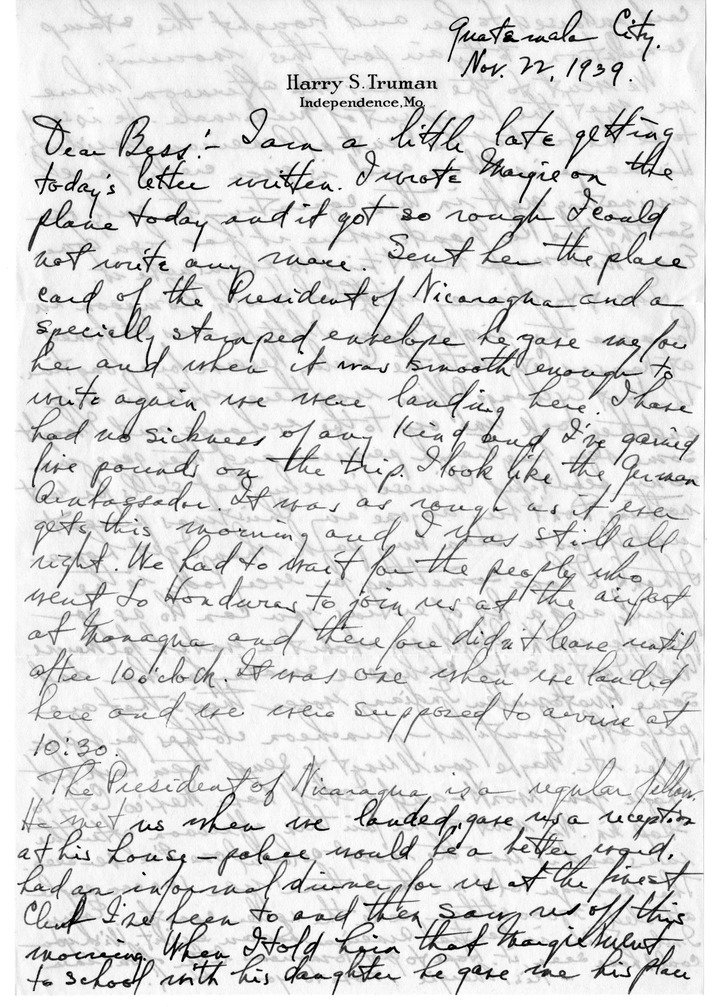 Guatemala City.
Nov. 22, 1939.
Harry S. Truman
Independence, Mo.
Dear Bess:- I am a little late getting
today's letter written. I wrote Margie on the
plane today and it got so rough I could
not write any more. Sent her the place
card of the President of Nicaragua and a
specially stamped envelope he gave me for
her and when it was smooth enough to
write again we were landing here. I have
had no sickness of any kind and I've gained
five pounds on the trip. I look like the German
Ambassador. It was as rough as it ever
gets this morning and I was still all
right. We had to wait for the people who
went to Honduras to join us at the airport
at Managua and therefore didn't leave until
after 10 o'clock. It was one when we landed
here and we were supposed to arrive at
10:30.
The President of Nicaragua is a regular fellow.
He met us when we landed, gave us a reception
at his house - palace would be a better word,
had an informal dinner for us at the finest
Club I've been to and then saw us off this
morning. When I told him that Margie went
to school with his daughter he gave me his place